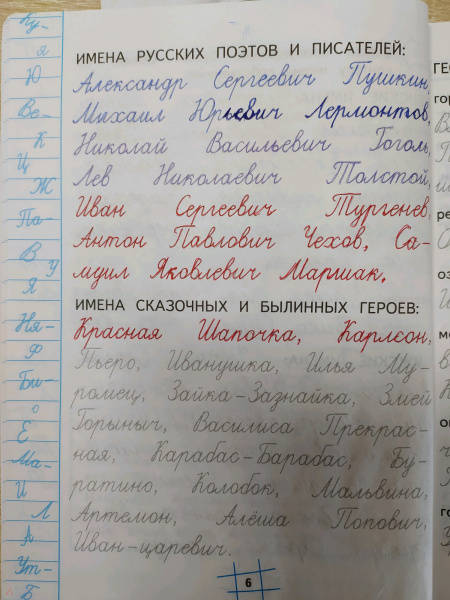 ИМЕНА РУССКИХ ПОЭТОВ И ПИСАТЕЛЕЙ:
Александр Сергеевич Пушкин,
Михаил Юрьевич Лермонтов,
Николай Васильевич Гоголь,
Лев Николаевич Толстой,
Иван Сергеевич Тургенев,
Антон Павлович Чехов, Са-
муил Яковлевич Маршак.
ИМЕНА СКАЗОЧНЫХ И БЫЛИННЫХ ГЕРОЕВ:
Красная Шапочка, Карлсон,
Пьеро, Иванушка, Илья Му-
ромец, Зайка-Зазнайка, Змей
Горыныч, Василиса Прекрас-
ная, Карабас-Барабас, Бу-
ратино, Колобок, Мальвина,
Артемон, Алёша Попович,
Иван-царевич.
6
Ку-
я
Ю
Ве-
К
Ц
Ж
Па-
В
У
Я
Ня-
Ф
Би-
о
Е
Ма-
И
Л
А
Ут-
Б